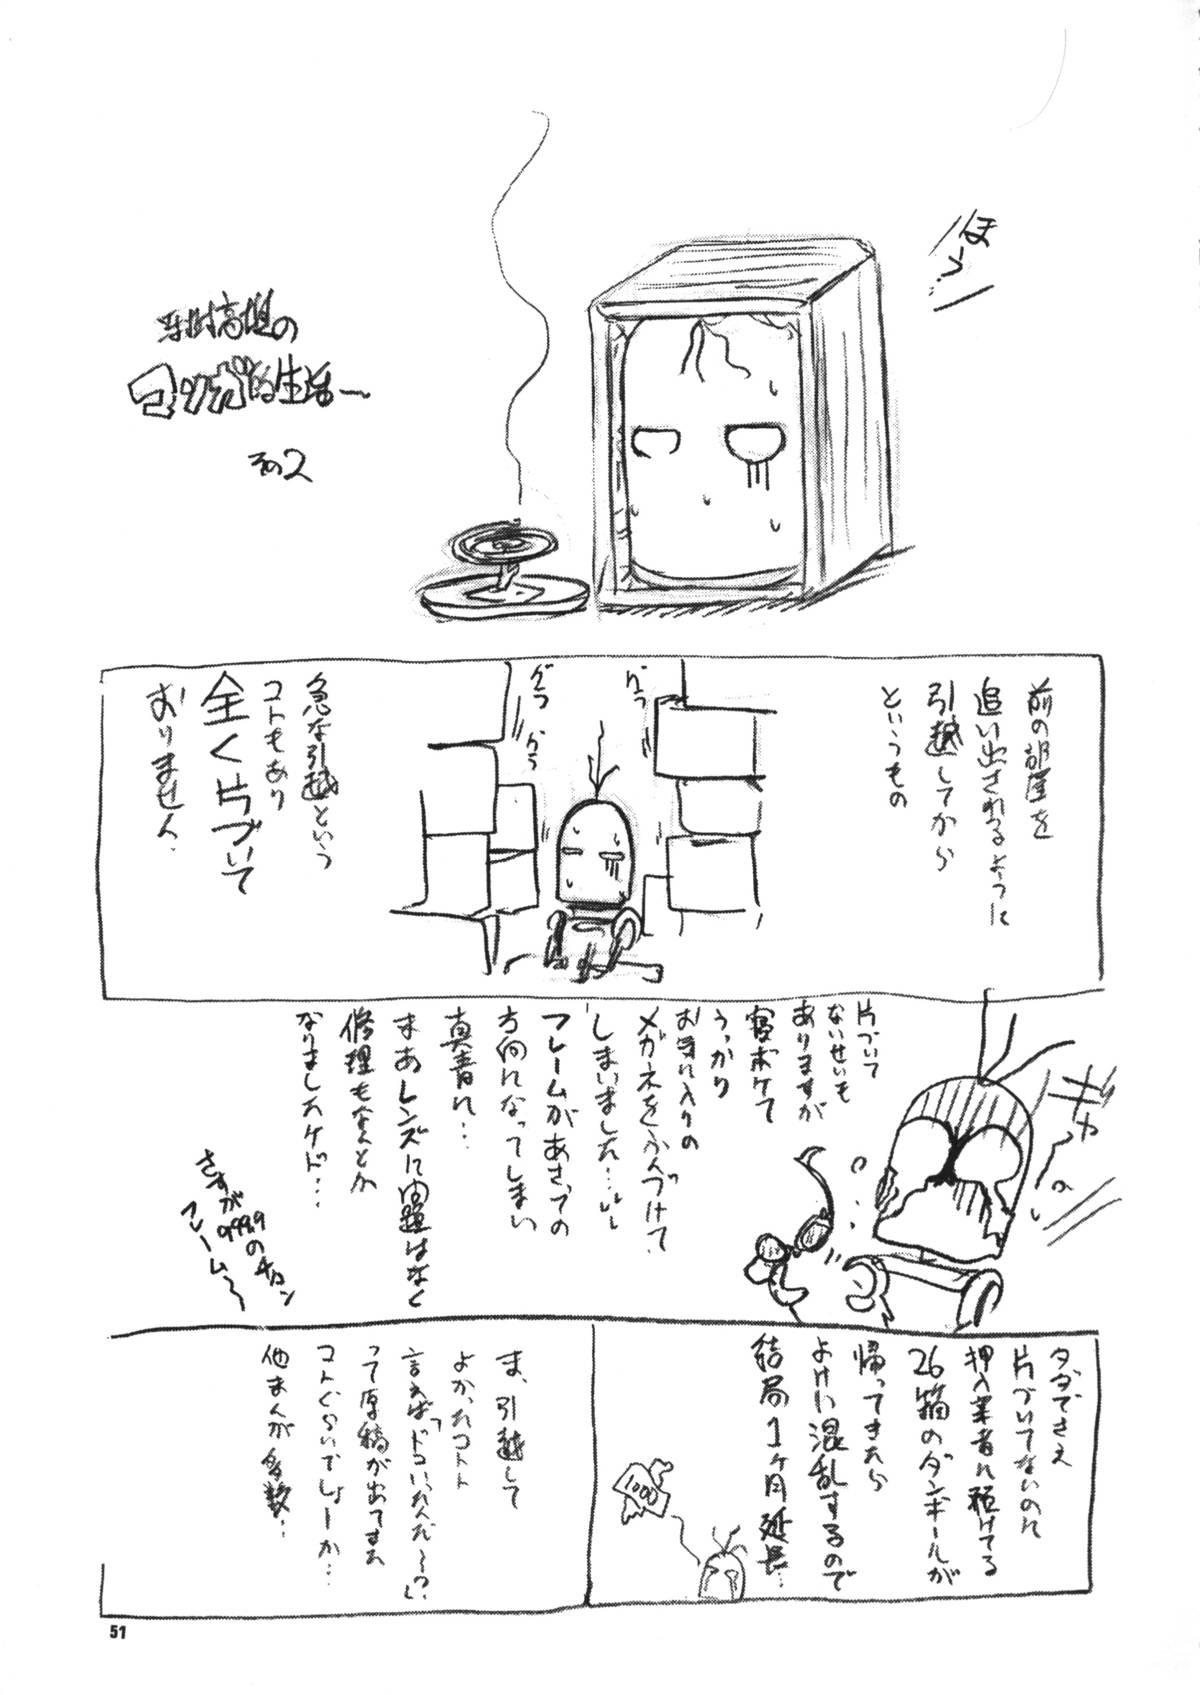 ほーっ
マンガ的生活〜
その2
前の部屋を
追い出されるように
引越してから
というもの
グラ
グラ
グラ
急な引越という
コトもあり
全く片づいて
おりません.
片づいて
ないせいも
ありますが
寝ボケて
うっかり
お気に入りの
メガネをふんづけて
しまいました…
フレームがあさっての
方向になってしまい
真青に…
まあレンズに問題はなく
修理もなんとか
なりましたケド…
さすが
999.9の
フレーム〜
タダでさえ
片づいてないのに
押入業者に預けてる
26箱のダンボールが
帰ってきたら
よけい混乱するので
結局1ヶ月延長…
1000
ま、引越して
よかったコトと
言えば「ドコいったんだ〜!?」
って原稿が出てきた
コトぐらいでしょーか…
他まんが多数…
51